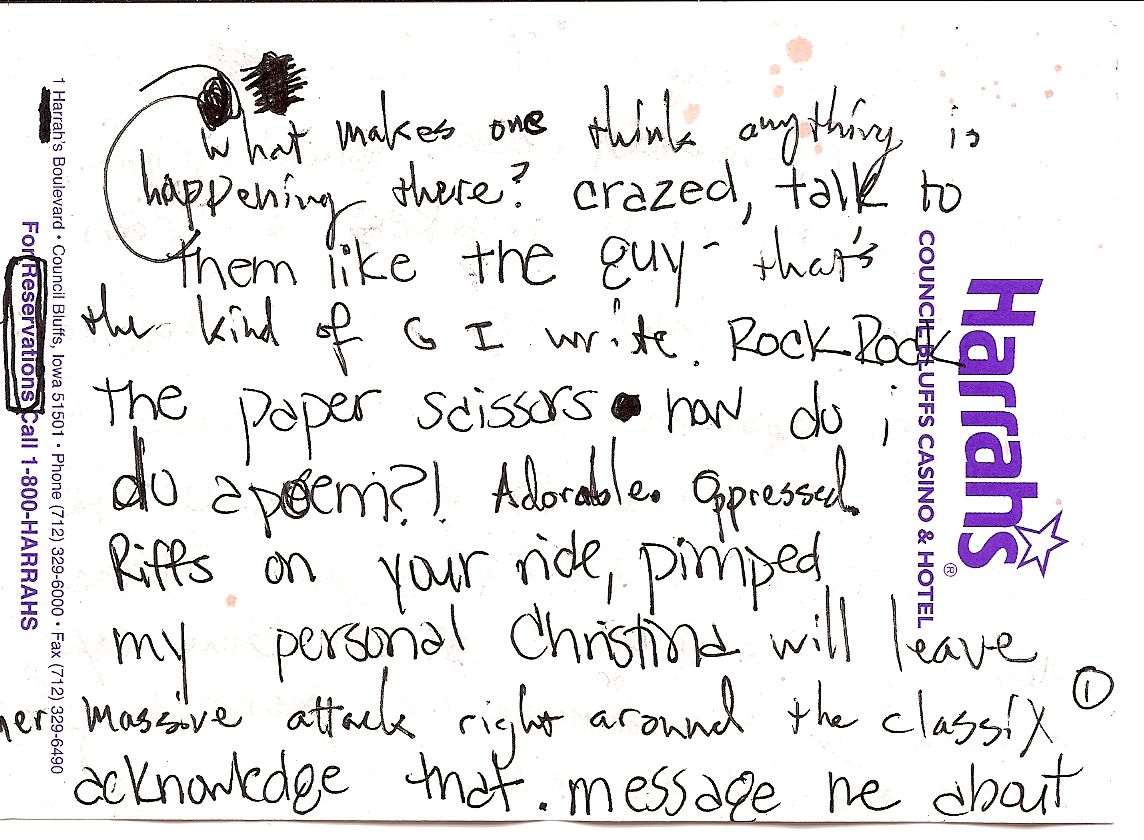 What makes one think anything is
happening there? crazed, talk to
them like the guy - that's
the kind of G I write. Rock Rock
the paper scissors • how do i
do a poem?! Adorable. Oppressed.
Riffs on your ride, pimped
my personal Christina will leave
her massive attack right around the classix
acknowledge that. message me about
①
Harrah's®
COUNCIL BLUFFS CASINO & HOTEL
1 Harrah's Boulevard • Council Bluffs, Iowa 51501 • Phone (712) 329-6000 • Fax (712) 329-6490
For Reservations Call 1-800-HARRAHS